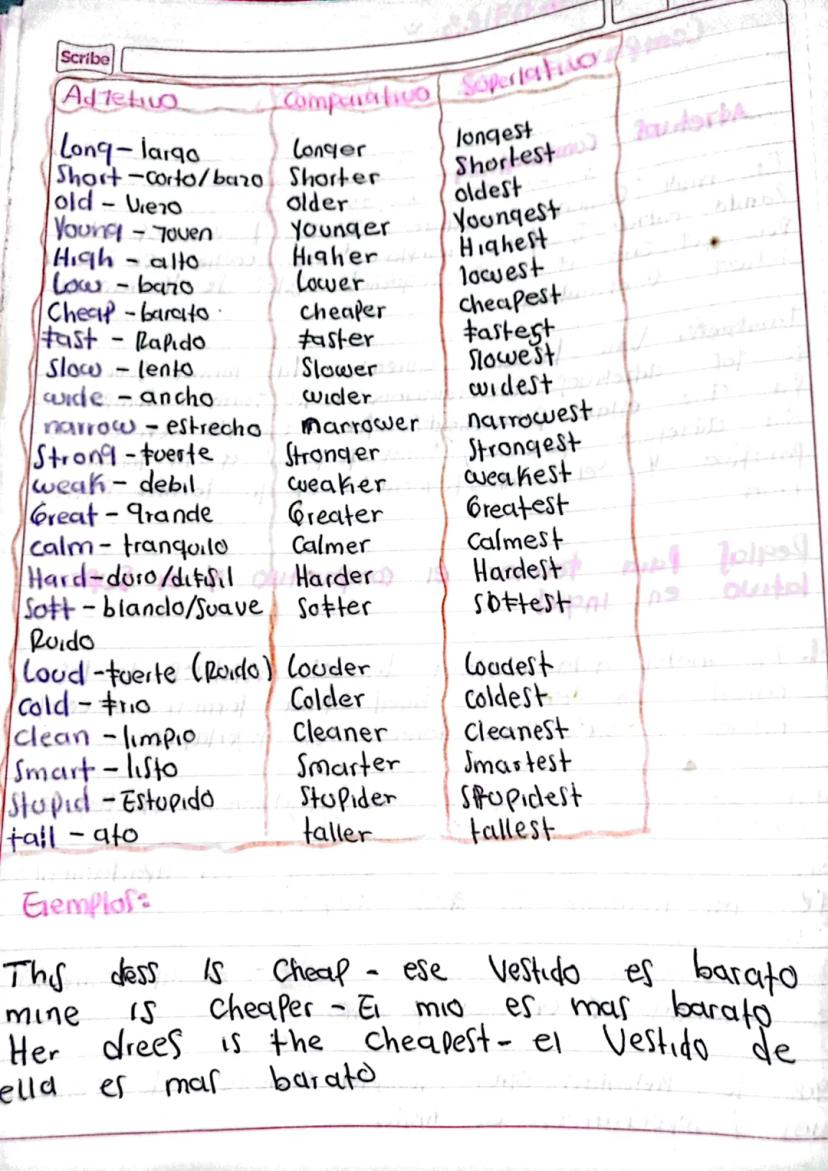 Scribe
Adjetivo Comparativo Superlativo
Long - largo Longer longest
Short - corto/bajo Shorter Shortest
old - Viejo older oldest
Young - Joven younger Youngest
High - alto Higher Highest
Low - bajo Lower lowest
Cheap - barato cheaper cheapest
fast - Rapido faster fastest
Slow - lento Slower Slowest
wide - ancho wider widest
narrow - estrecho marrower narrowest
Strong - fuerte Stronger Strongest
weak - debil weaker weakest
Great - grande Greater Greatest
calm - tranquilo Calmer Calmest
Hard - duro/difisil Harder Hardest
Soft - blando/Suave Softer softest
Ruido
Loud - fuerte (Ruido) Louder Loudest
cold - frio Colder coldest
clean - limpio Cleaner Cleanest
Smart - listo Smarter Smartest
Stupid - Estupido Stupider Stupidest
tall - ato taller tallest
Ejemplos:
This dess is Cheap - ese Vestido es barato
mine is cheaper - El mio es mas barato
Her drees is the cheapest - el Vestido de
ella es mas barato